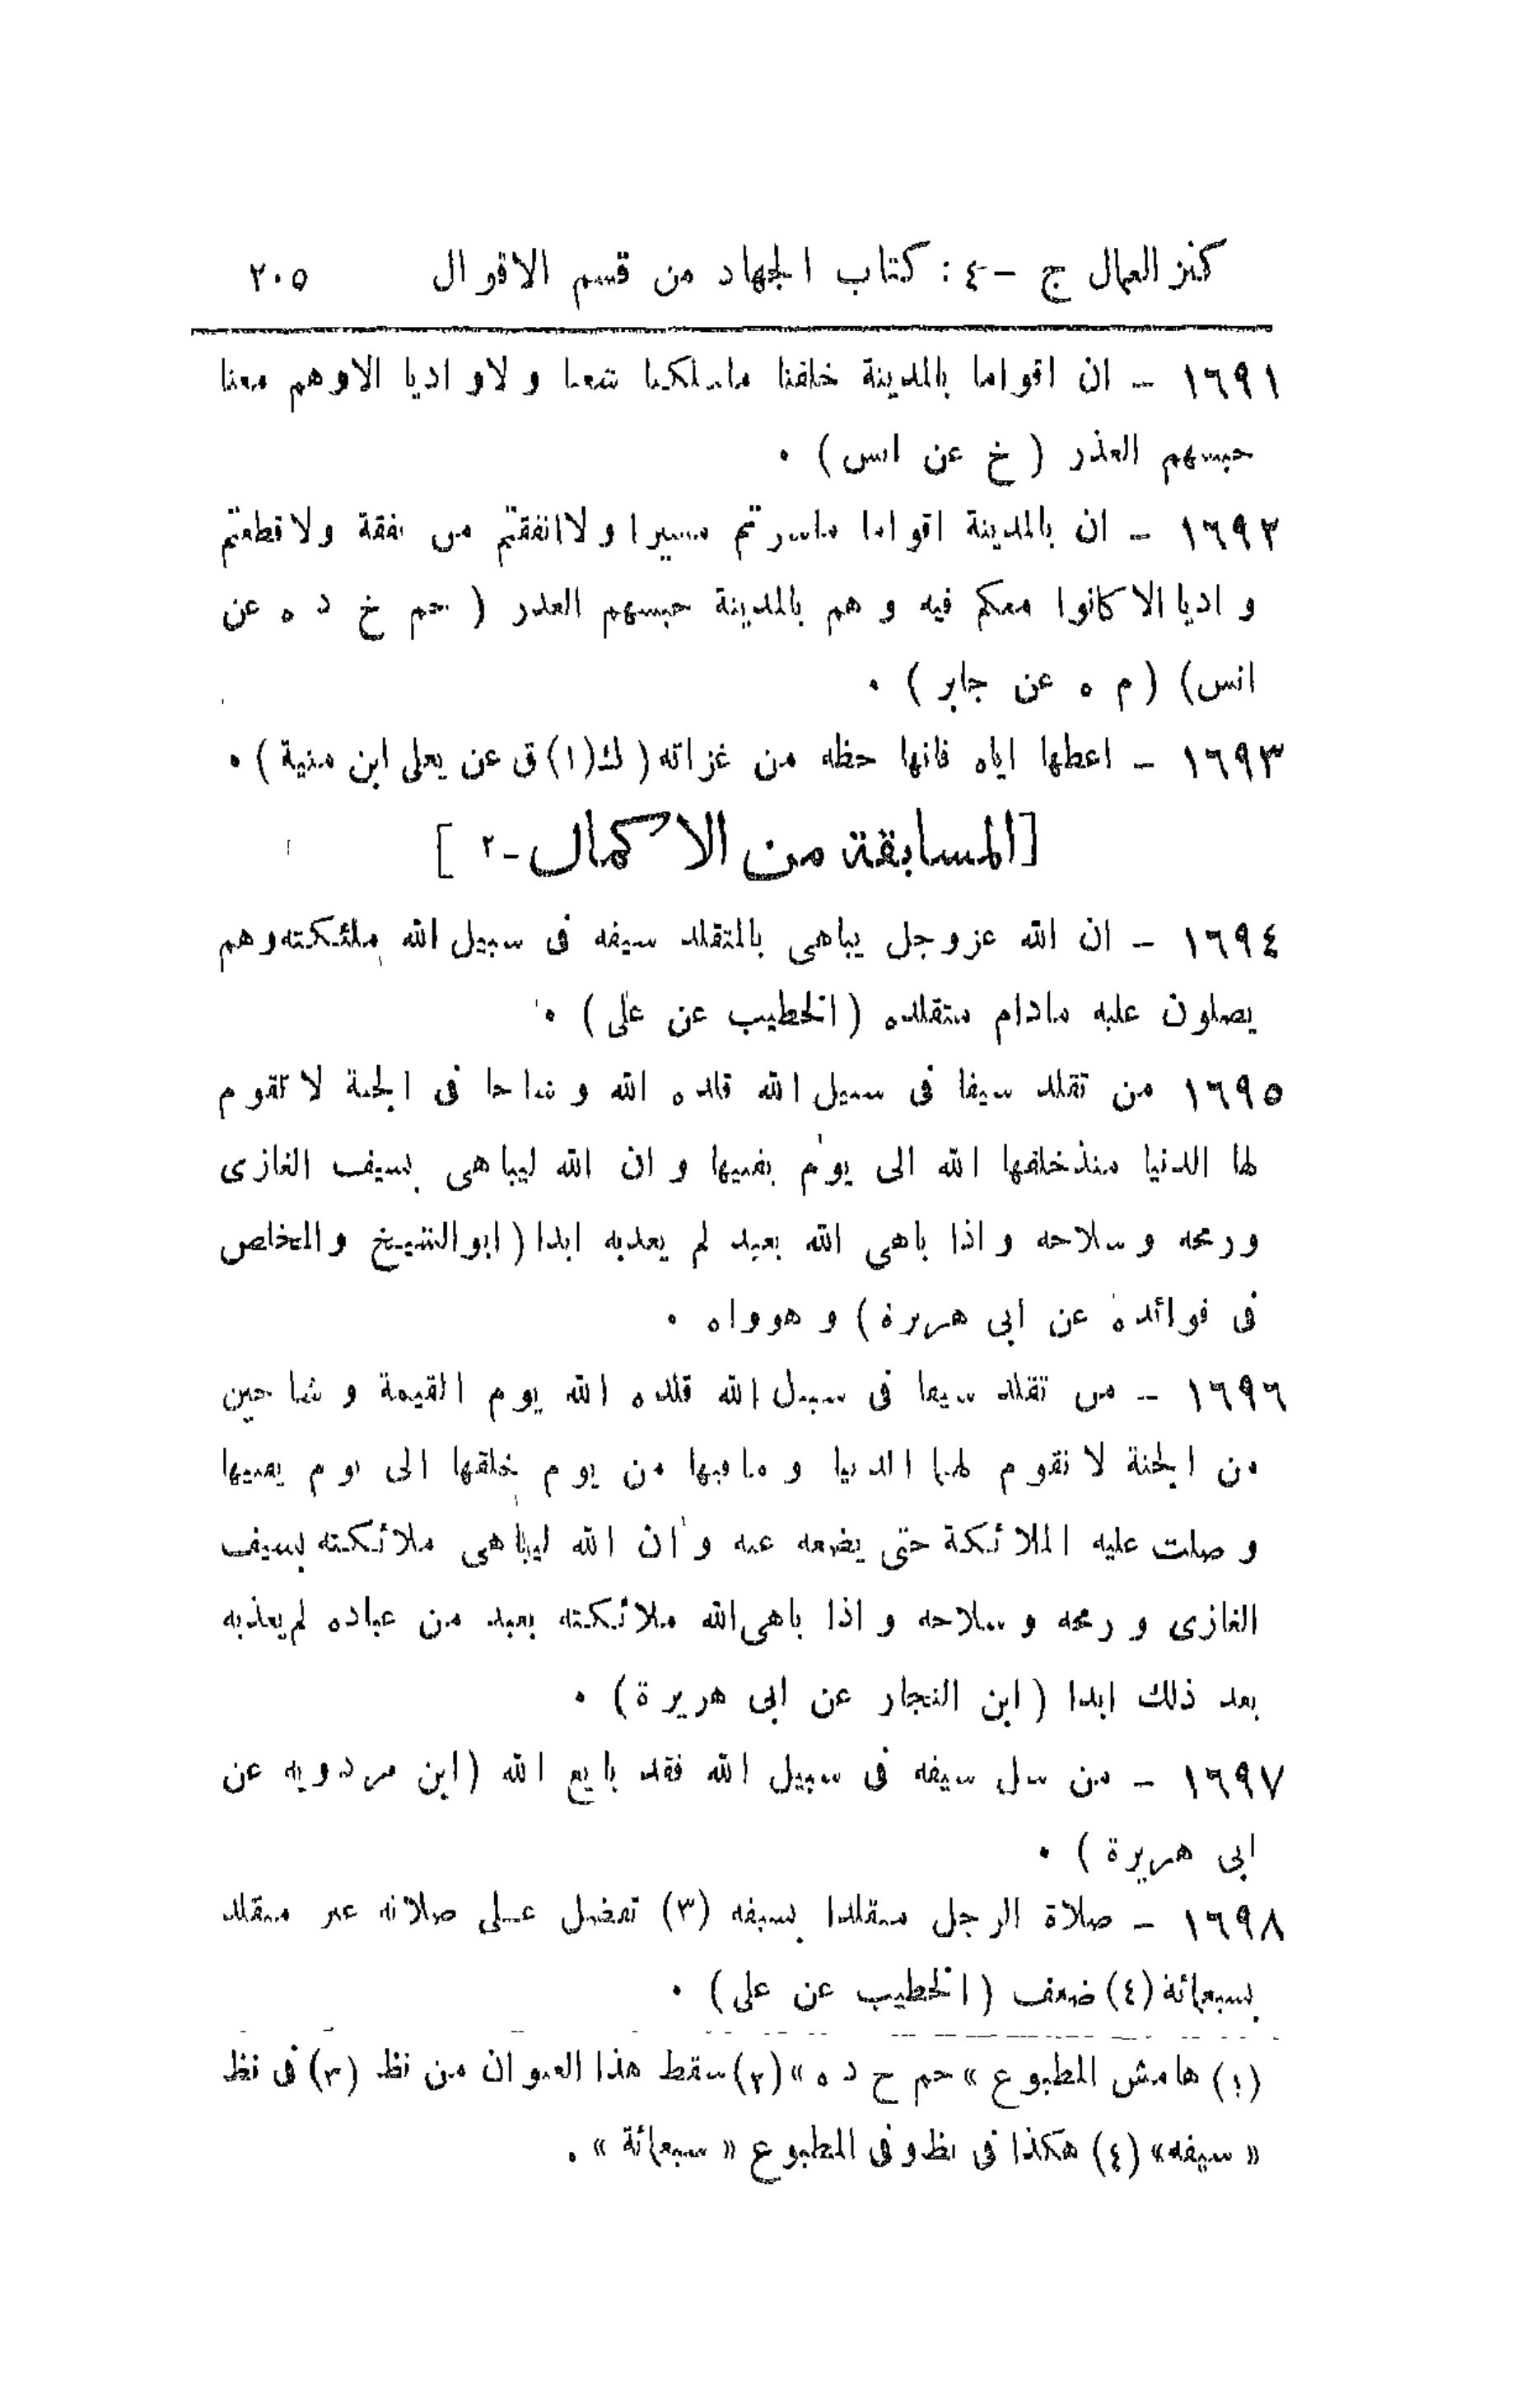 كنز العمال ج - ٤ : كتاب الجهاد من قسم الاقوال ٢٠٥
١٦٩١ - ان اقواما بالمدينة خلفنا ماسلكنا شعبا و لاو اديا الاوهم معنا
حبسهم العذر ( خ عن انس ) .
١٦٩٢ - ان بالمدينة اقواما ماسرتم مسيرا و لاانفقتم من نفقة ولاقطعتم
و اديا الا كانوا معكم فيه و هم بالمدينة حبسهم العذر ( حم خ د ه عن
انس) ( م ه عن جابر ) .
١٦٩٣ - اعطها اياه فانها حظه من غزاته ( ك(١) ق عن يعلى ابن منية ) .
[المسابقة من الاكمال - ٢ ]
١٦٩٤ - ان الله عزوجل يباهى بالمتقلد سيفه فى سبيل الله ملئكته وهم
يصلون عليه مادام متقلده (الخطيب عن على) .
١٦٩٥ من تقلد سيفا فى سبيل الله قلده الله وشاحا فى الجنة لا تقوم
لها الدنيا منذخلقها الله الى يوم يفنيها و ان الله ليباهى بسيف الغازى
ورمحه و سلاحه و اذا باهى الله بعبد لم يعذبه ابدا ( ابوالشيخ والمخلص
فى فوائده عن ابى هريرة ) و هوواه .
١٦٩٦ - من تقلد سيفا فى سبيل الله قلده الله يوم القيمة وشاحين
من الجنة لا تقوم لهما الدنيا و ما فيها من يوم خلقها الى يوم يفنيها
و صلت عليه الملائكة حتى يضعه عنه و ان الله ليباهى ملائكته بسيف
الغازى و رمحه و سلاحه و اذا باهى الله ملائكته بعبد من عباده لم يعذبه
بعد ذلك ابدا ( ابن النجار عن ابى هريرة ) .
١٦٩٧ - من سل سيفه فى سبيل الله فقد بايع الله ( ابن مردويه عن
ابى هريرة ) .
١٦٩٨ - صلاة الرجل متقلدا بسيفه (٣) تفضل على صلاته غير متقلد
بسبعمائة (٤) ضعف ( الخطيب عن على ) .
(١) هامش المطبوع » حم ح د ه » (٢) سقط هذا العنوان من نظ (٣) فى نظ
« سيفه» (٤) هكذا فى نظ و فى المطبوع « سبعمائة » .